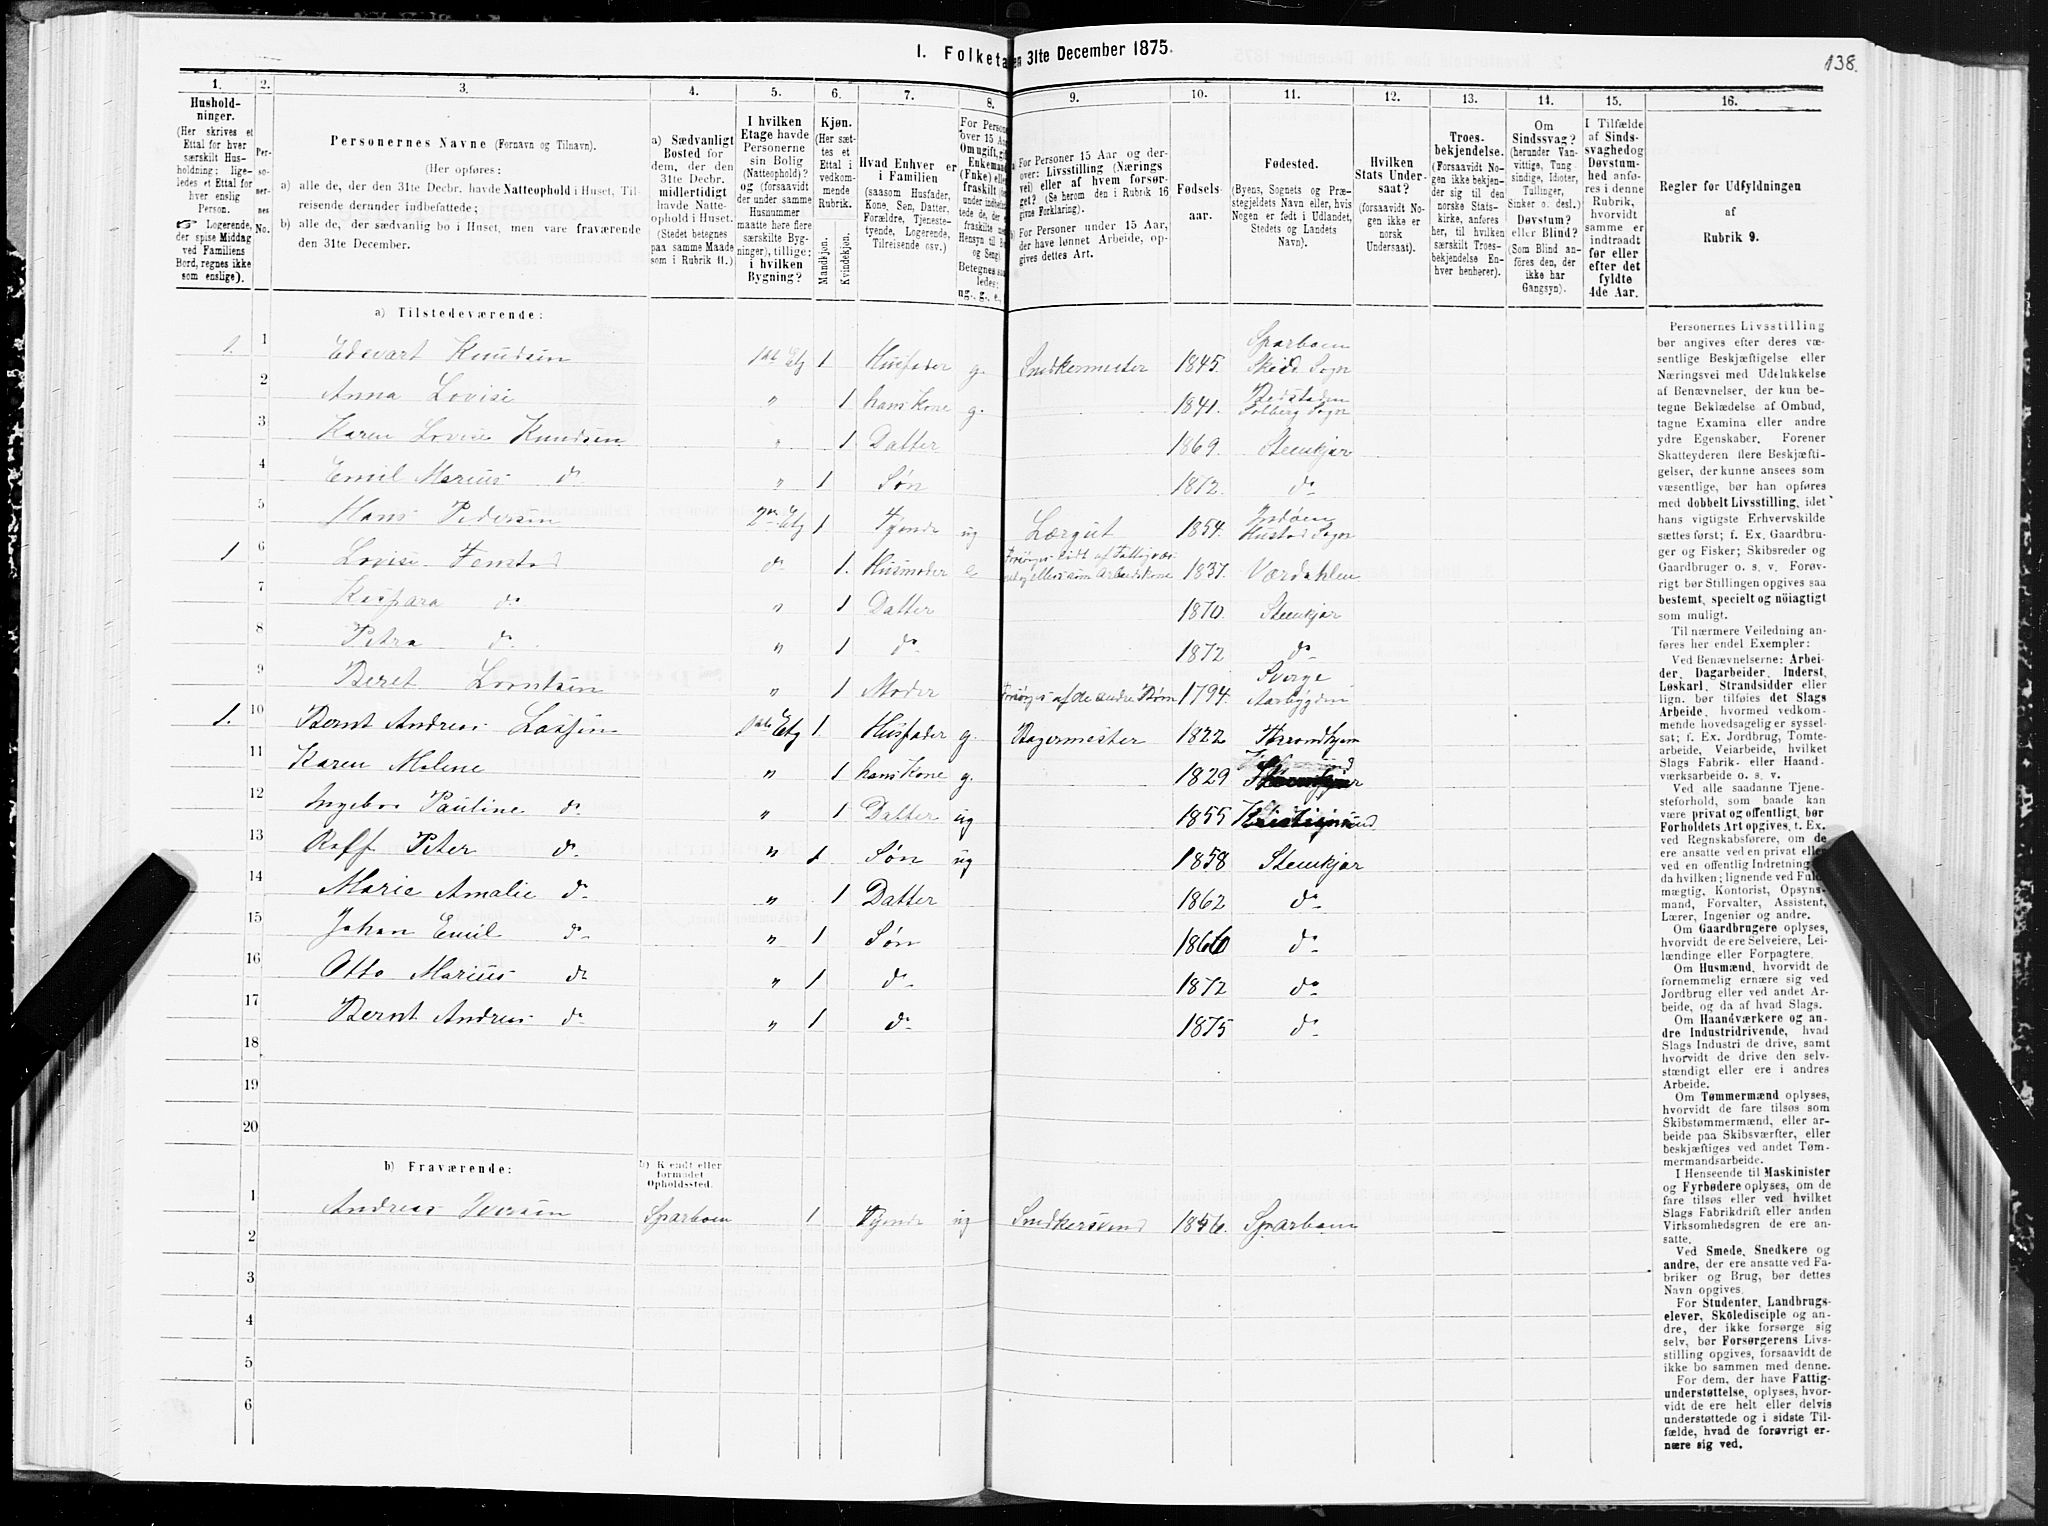 I. Folketa en 31te December 1875.
138.
1. 2. 3. 4. 5. 6. 7. 8. 9. 10. 11. 12. 13. 14. 15. 16.
Hushold-
ninger.
(Her skrives et
Ettal for hver
særskilt Hus-
holdning; lige-
ledes et Ettal for
hver enslig
Person.
☞ Logerende,
der spise Middag
ved Familiens
Bord, regnes ikke
som enslige).
Per-
so-
ner-
nes
No.
Personernes Navne (Fornavn og Tilnavn).
(Her opføres:
a) alle de, der den 31te Decbr. havde Natteophold i Huset, Til-
reisende derunder indbefattede;
b) alle de, der sædvanlig bo i Huset, men vare fraværende
den 31te December.
a) Sædvanligt
Bosted for
dem, der den
31te Decbr.
midlertidigt
havde Natte-
ophold i Huset.
(Stedet betegnes
paa samme Maade
som i Rubrik 11.)
I hvilken
Etage havde
Personerne
sin Bolig
(Natteophold)?
og (forsaavidt
der under samme
Husnummer
maatte høre flere
særskilte Byg-
ninger), tillige:
i hvilken
Bygning?
Kjøn.
(Her sæt-
tes et
Ettal i
vedkom-
mende
Rubrik.
Mandkjøn.
Kvindekjøn.
Hvad Enhver er
i Familien
(saasom Husfader,
Kone, Søn, Datter,
Forældre, Tjeneste-
tyende, Logerende,
Tilreisende osv.)
For Person
over 15 Aar
Om ugift, gift
Enkemand
(Enke) eller
fraskilt
Betegnes saa-
ledes:
ug., g., e.,
a For Personer 15 Aar og der-
over: Livsstilling (Nærings
vei) eller af hvem forsør-
get? (Se herom den i Rubrik 16
givne Forklaring).
b For Personer under 15 Aar,
der have lønnet Arbeide, op-
gives dettes Art.
Fødsels-
aar.
Fødested.
(Byens, Sognets og Præ-
stegjeldets Navn eller, hvis
Nogen er født i Udlandet,
Stedets og Landets
Navn).
Hvilken
Stats Under-
saat?
(forsaavidt No-
gen ikke er
norsk
Undersaat).
Troes-
bekjendelse.
(Forsaavidt No-
gen ikke bekjen-
der sig til den
norske Stats-
kirke, anføres
her, til hvilken
særskilt Troes-
bekjendelse En-
hver henhører).
Om
Sindssvag?
(herunder Van-
vittige, Tung
sindige, Idioter,
Tullinger,
Sinker o. desl.)
Døvstum?
eller Blind?
(Som Blind an-
føres den, der
ikke har
Gangsyn).
I Tilfælde
af Sinds-
svaghed og
Døvstum-
hed anfø-
res i denne
Rubrik,
hvorvidt
samme er
indtraadt
før eller
efter det
fyldte
4de Aar.
Regler for Udfyldningen
af
Rubrik 9.
a) Tilstedeværende:
1. 1 Edevart Knudsen 1ste Etg 1 Husfader g. Snedkermester 1845. Sparboen Skeid Sogn
2 Anna Lovise " 1 hans Kone g. 1841. Solberg Sogn
3 Karen Lovise Knudsen " 1 Datter 1869. Steenkjær
4 Emil Marius do " 1 Søn 1872. do
5 Hans Pedersen 2den Etg 1 Tyende ug Lærgut 1854. Inderøen Hustad Sogn
1 6 Lovise Femstad do 1. Husmoder e 1837. Værdahlen
7 Kaspara do " 1 Datter 1870. Steenkjær
8 Petra do " 1 do 1872 do
9 Beret Lorntsen " 1 Moder Forsørges af de andre Børn 1794. Sverge
1. 10 Bernt Andreas Lassen 1ste Etg 1 Husfader g. Bagermester 1822 Throndhjem
11 Karen Malene " 1 hans Kone g. 1829
12 Ingebor Pauline do " 1 Datter ug 1855
13 Rolf Peter do " 1 Søn ug 1858 Steenkjær
14 Marie Amalie do " 1 Datter 1862 do
15 Johan Emil do " 1 Søn 1866 do
16 Otto Marius do " 1 do 1872 do
17 Bernt Andreas do " 1 do 1875 do
18
19
20
b) Fraværende:
b) Kjendt eller
formodet
Opholdssted.
1 Andreas Iversen Sparboen 1 Tyende ug Snedkersvend 1856. Sparboen
2
3
4
5
6
Personernes Livsstilling
bør angives efter deres væ-
sentlige Beskjæftigelse eller
Næringsvei med Udelukkelse
af Benævnelser, der kun be-
tegne Beklædelse af Ombud,
tagne Examina eller andre
ydre Egenskaber. Forener
Skatteyderen flere Beskjæfti-
gelser, der kunne ansees som
væsentlige, bør han opføres
med dobbelt Livsstilling, idet
hans vigtigste Erhvervskilde
sættes først; f. Ex. Gaardbru-
ger og Fisker; Skibsreder og
Gaardbruger o. s. v. Forøv-
rigt bør Stillingen opgives saa
bestemt, specielt og nöiagtigt
som muligt.
Til nærmere Veiledning an-
føres her endel Exempler:
Ved Benævnelserne: Arbei-
der, Dagarbeider, Inderst,
Løskarl, Strandsidder eller
lign. bør tilføies det Slags
Arbeide, hvormed vedkom-
mende hovedsagelig er syssel-
sat; f. Ex. Jordbrug, Tomte-
arbeide, Veiarbeide, hvilket
Slags Fabrik- eller Haand-
værksarbeide o. s. v.
Ved alle saadanne Tjene-
steforhold, som baade kan
være privat og offentligt, bør
Forholdets Art opgives, t. Ex.
ved Regnskabsførere, om de
ere ansatte ved en privat eller
ved en offentlig Indretning og
da hvilken; lignende ved Fuld-
mægtig, Kontorist, Opsyns-
mand, Forvalter, Assistent,
Lærer, Ingeniør og andre.
Om Gaardbrugere oplyses,
hvorvidt de ere Selveiere, Lei-
lændinge eller Forpagtere.
Om Husmænd, hvorvidt de
fornemmelig ernære sig ved
Jordbrug eller ved andet Ar-
beide, og da af hvad Slags.
Om Haandværkere og an-
dre Industridrivende, hvad
Slags Industri de drive, samt
hvorvidt de drive den selv-
stændigt eller ere i andres
Arbeide.
Om Tømmermænd oplyses,
hvorvidt de fare tilsøs som
Skibstømmermænd, eller ar-
beide paa Skibsværfter, eller
beskjæftiges ved andet Tøm-
mermandsarbeide.
I Henseende til Maskinister
og Fyrbødere oplyses, om de
fare tilsøs eller ved hvilket
Slags Fabrikdrift eller anden
Virksomhedsgren de ere an-
satte.
Ved Smede, Snedkere og
andre, der ere ansatte ved Fa-
briker og Brug, bør dettes
Navn opgives.
For Studenter, Landbrugs-
elever, Skoledisciple og an-
dre, der ikke forsørge sig
selv, bør Forsørgerens Livs-
stilling opgives, forsaavidt de
ikke bo sammen med denne.
For dem, der have Fattig-
understøttelse, oplyses, hvor-
vidt de ere helt eller delvis
understøttede og i sidste Til-
fælde, hvad de forøvrigt er-
nære sig ved.